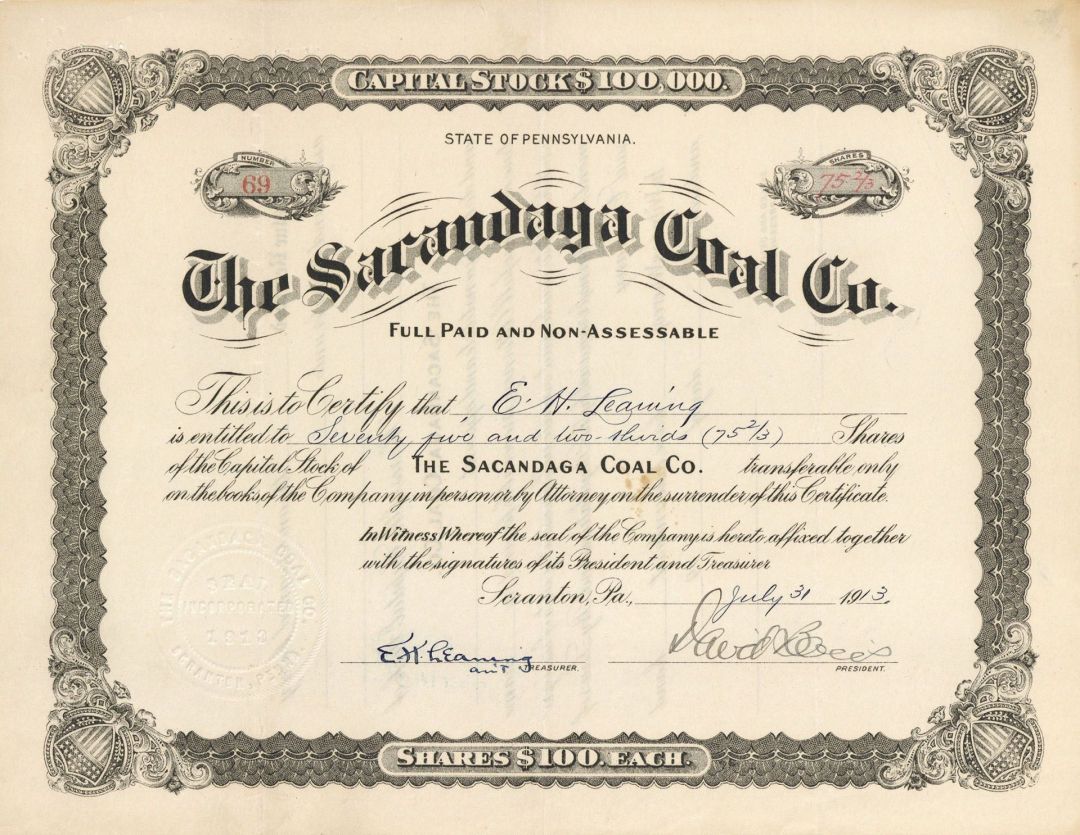 CAPITAL STOCK $100,000.
STATE OF PENNSYLVANIA.
NUMBER
69
SHARES
75 2/3
The Sacandaga Coal Co.
FULL PAID AND NON-ASSESSABLE
This is to Certify that E. H. Leaning
is entitled to Seventy five and two-thirds (75 2/3) Shares
of the Capital Stock of THE SACANDAGA COAL CO. transferable only
on the books of the Company in person or by Attorney on the surrender of this Certificate.
In Witness Whereof the seal of the Company is hereto affixed together
with the signatures of its President and Treasurer
Scranton, Pa., July 31 1913.
THE SACANDAGA COAL CO.
SEAL
INCORPORATED
1913
SCRANTON, PA.
E. H. Leaning
TREASURER.
David
PRESIDENT.
SHARES $100. EACH.